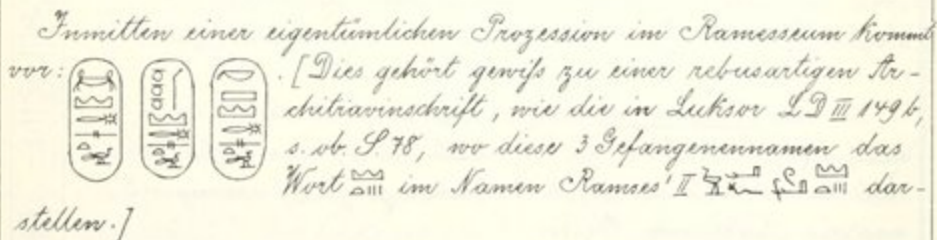 Inmitten einer eigentümlichen Prozession im Ramesseum kommt
vor: . [Dies gehört gewiſs zu einer rebusartigen Ar-
chitravinschrift, wie die in Luksor LD III 149 b,
s. ob. S. 78, wo diese 3 Gefangenennamen das
Wort im Namen Ramses' II dar-
stellen.]